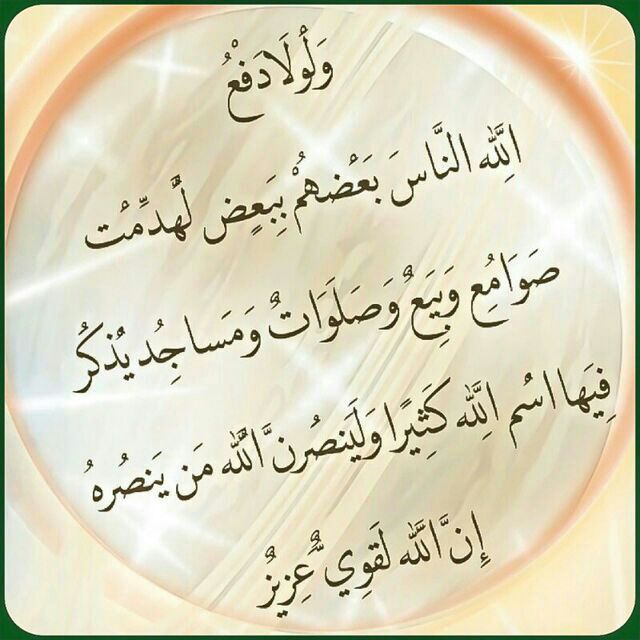 وَلَوْلَا دَفْعُ
اللَّهِ النَّاسَ بَعْضَهُمْ بِبَعْضٍ لَّهُدِّمَتْ
صَوَامِعُ وَبِيَعٌ وَصَلَوَاتٌ وَمَسَاجِدُ يُذْكَرُ
فِيهَا اسْمُ اللَّهِ كَثِيرًا وَلَيَنصُرَنَّ اللَّهُ مَن يَنصُرُهُ
إِنَّ اللَّهَ لَقَوِيٌّ عَزِيزٌ